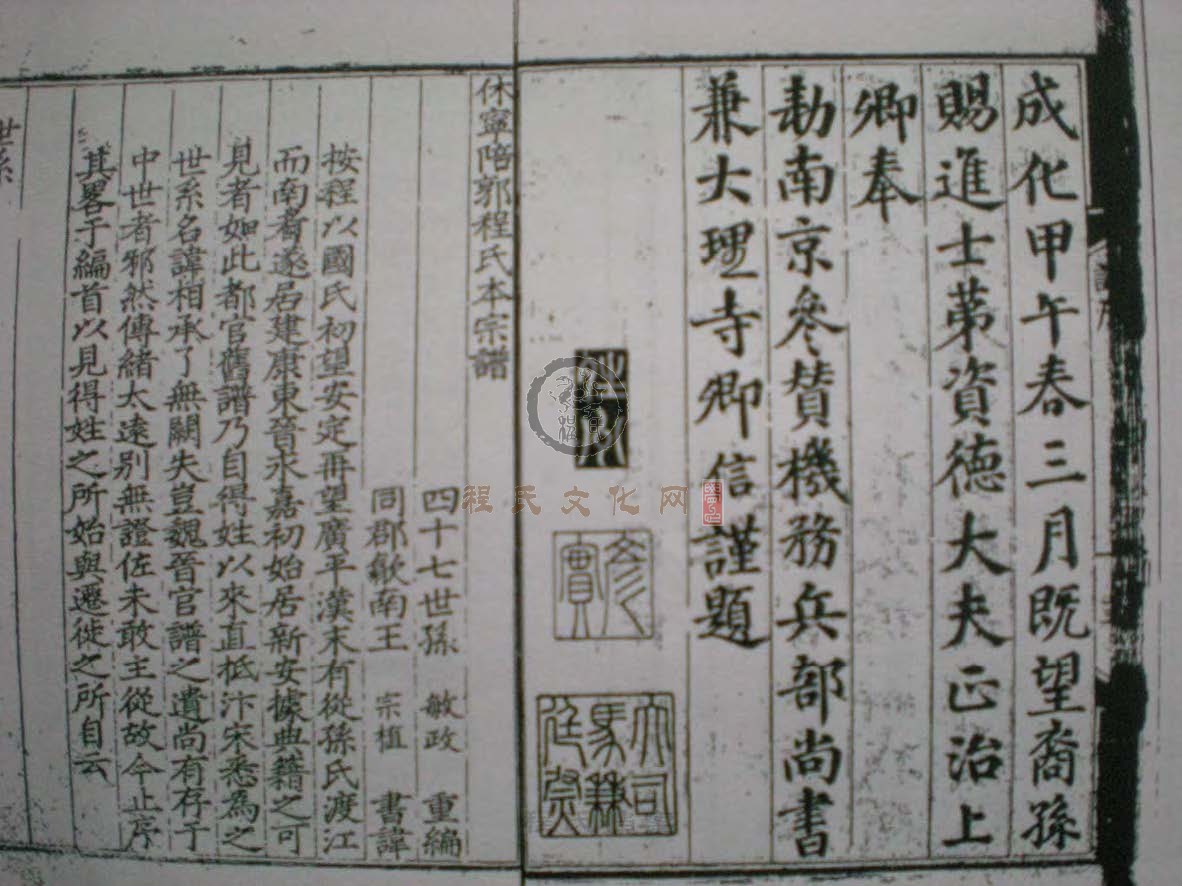 成化甲午春三月既望裔孫
賜進士第資德大夫正治上
卿奉
勑南京參贊機務兵部尚書
兼大理寺卿信謹題
彥實
大司馬兼廷尉
程氏文化网
休寧陪郭程氏本宗譜
四十七世孫 敏政 重編
同郡歙南王 宗植 書諱
按程以國氏初望安定再望廣平漢末有從孫氏渡江
而南者遂居建康東晉永嘉初始居新安據典籍之可
見者如此都官舊譜乃自得姓以來直柢汴宋悉為之
世系名諱相承了無闕失豈魏晉官譜之遺尚有存于
中世者邪然傳緒大遠别無證佐未敢主從故今止序
其畧于編首以見得姓之所始與遷徙之所自云
世系